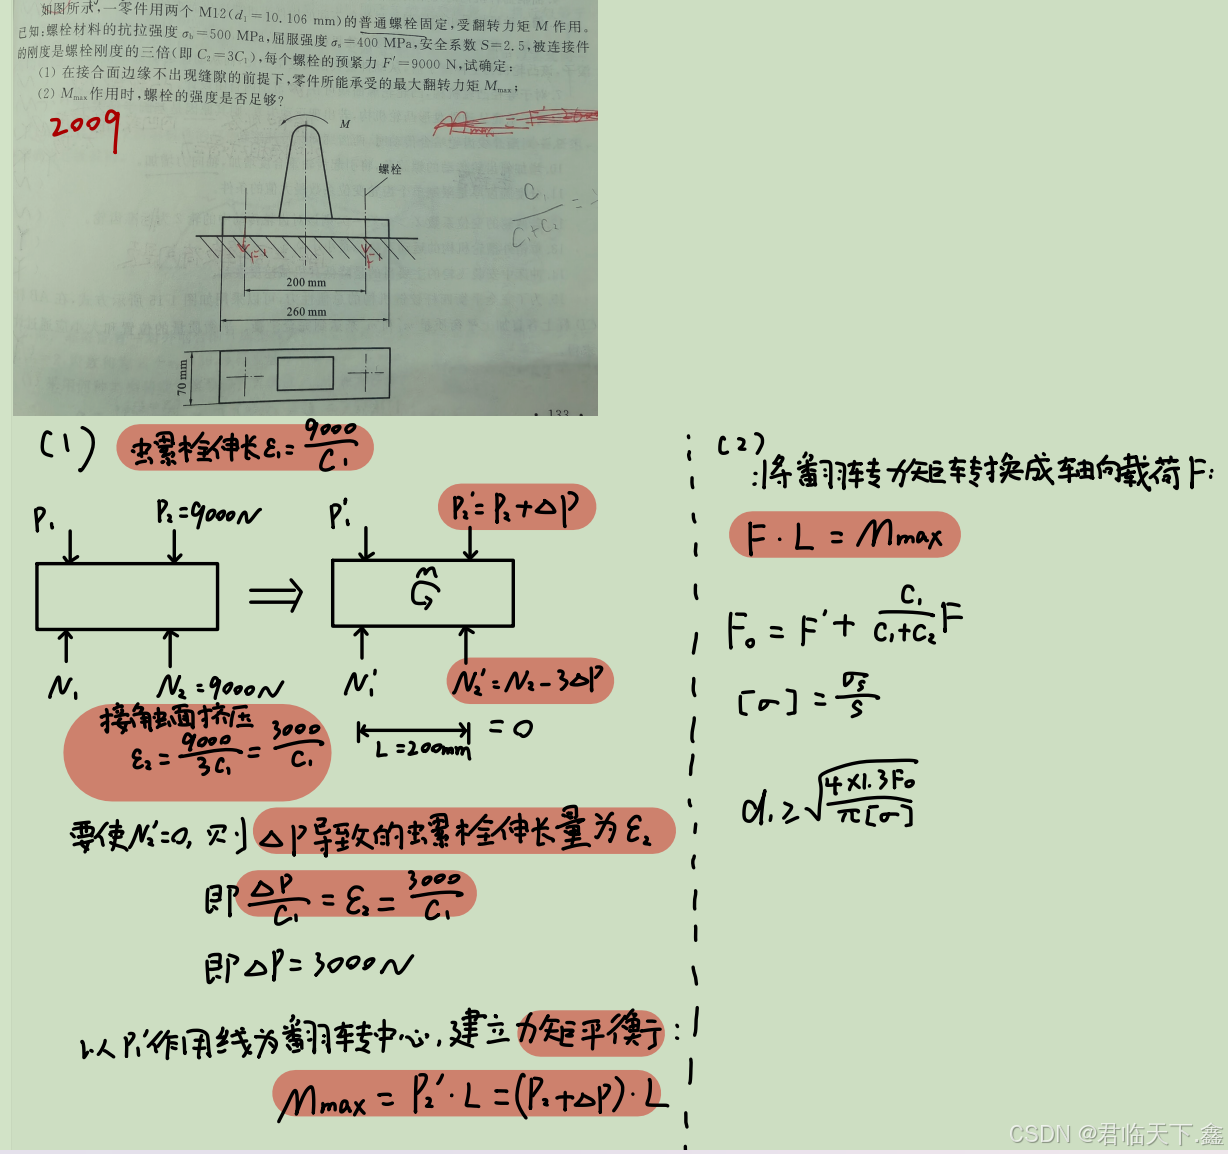 如图所示,一零件用两个 M12(d₁=10.106 mm)的普通螺栓固定,受翻转力矩 M 作用。
已知:螺栓材料的抗拉强度 σb=500 MPa,屈服强度 σs=400 MPa,安全系数 S=2.5,被连接件
的刚度是螺栓刚度的三倍(即 C₂=3C₁),每个螺栓的预紧力 F′=9000 N,试确定:
(1) 在接合面边缘不出现缝隙的前提下,零件所能承受的最大翻转力矩 Mmax;
(2) Mmax作用时,螺栓的强度是否足够?
2009
M
螺栓
C₁/(C₁+C₂) =
200 mm
260 mm
70 mm
· 133 ·
(1) 螺栓伸长 ε₁=9000/C₁
P₁ P₂=9000N P₁′ P₂′=P₂+ΔP
m
N₁ N₂=9000N N₁′ N₂′=N₂-3ΔP
=0
L=200mm
接触面挤压
ε₂=9000/3C₁=3000/C₁
要使N₂′=0, 则 ΔP导致的螺栓伸长量为ε₂
即 ΔP/C₁=ε₂=3000/C₁
即 ΔP=3000N
以P₁′作用线为翻转中心,建立力矩平衡:
Mmax=P₂′·L=(P₂+ΔP)·L
(2)
:将翻转力矩转换成轴向载荷F:
F·L=Mmax
F₀=F′+C₁/(C₁+C₂)F
[σ]=σs/S
d₁≥√(4×1.3F₀/π[σ])
CSDN @君临天下.鑫